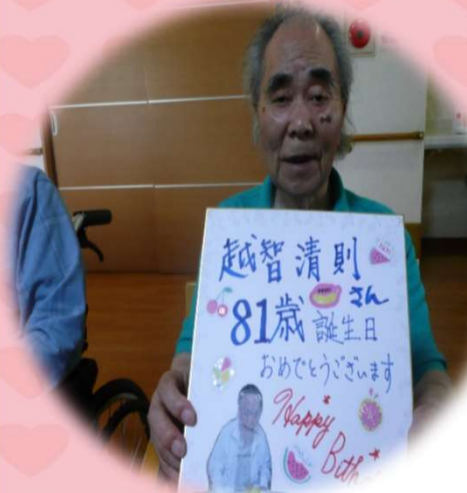 越智清則
さん
81歳 誕生日
おめでとうございます
Happy
Birth